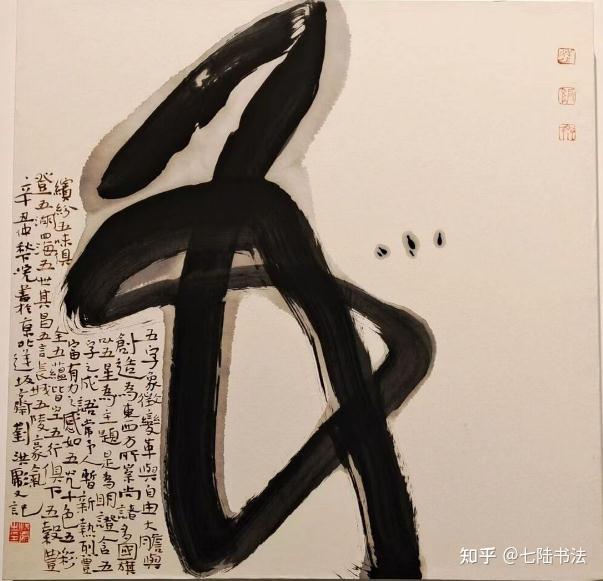 五
五字象徵變革與自由大膽與
創造為東西方所崇尚諸多國旗
以五星為主題是為明證含五
字之成語常予人暫新熱烈豐
富有力之感如五光十色五彩
繽紛五味俱全五蘊皆空五行俱下五穀豐
登五湖四海五世其昌五言長城五陵豪氣
辛丑仲秋下浣書於京北齋劉洪彪又記
知乎 @七陆书法